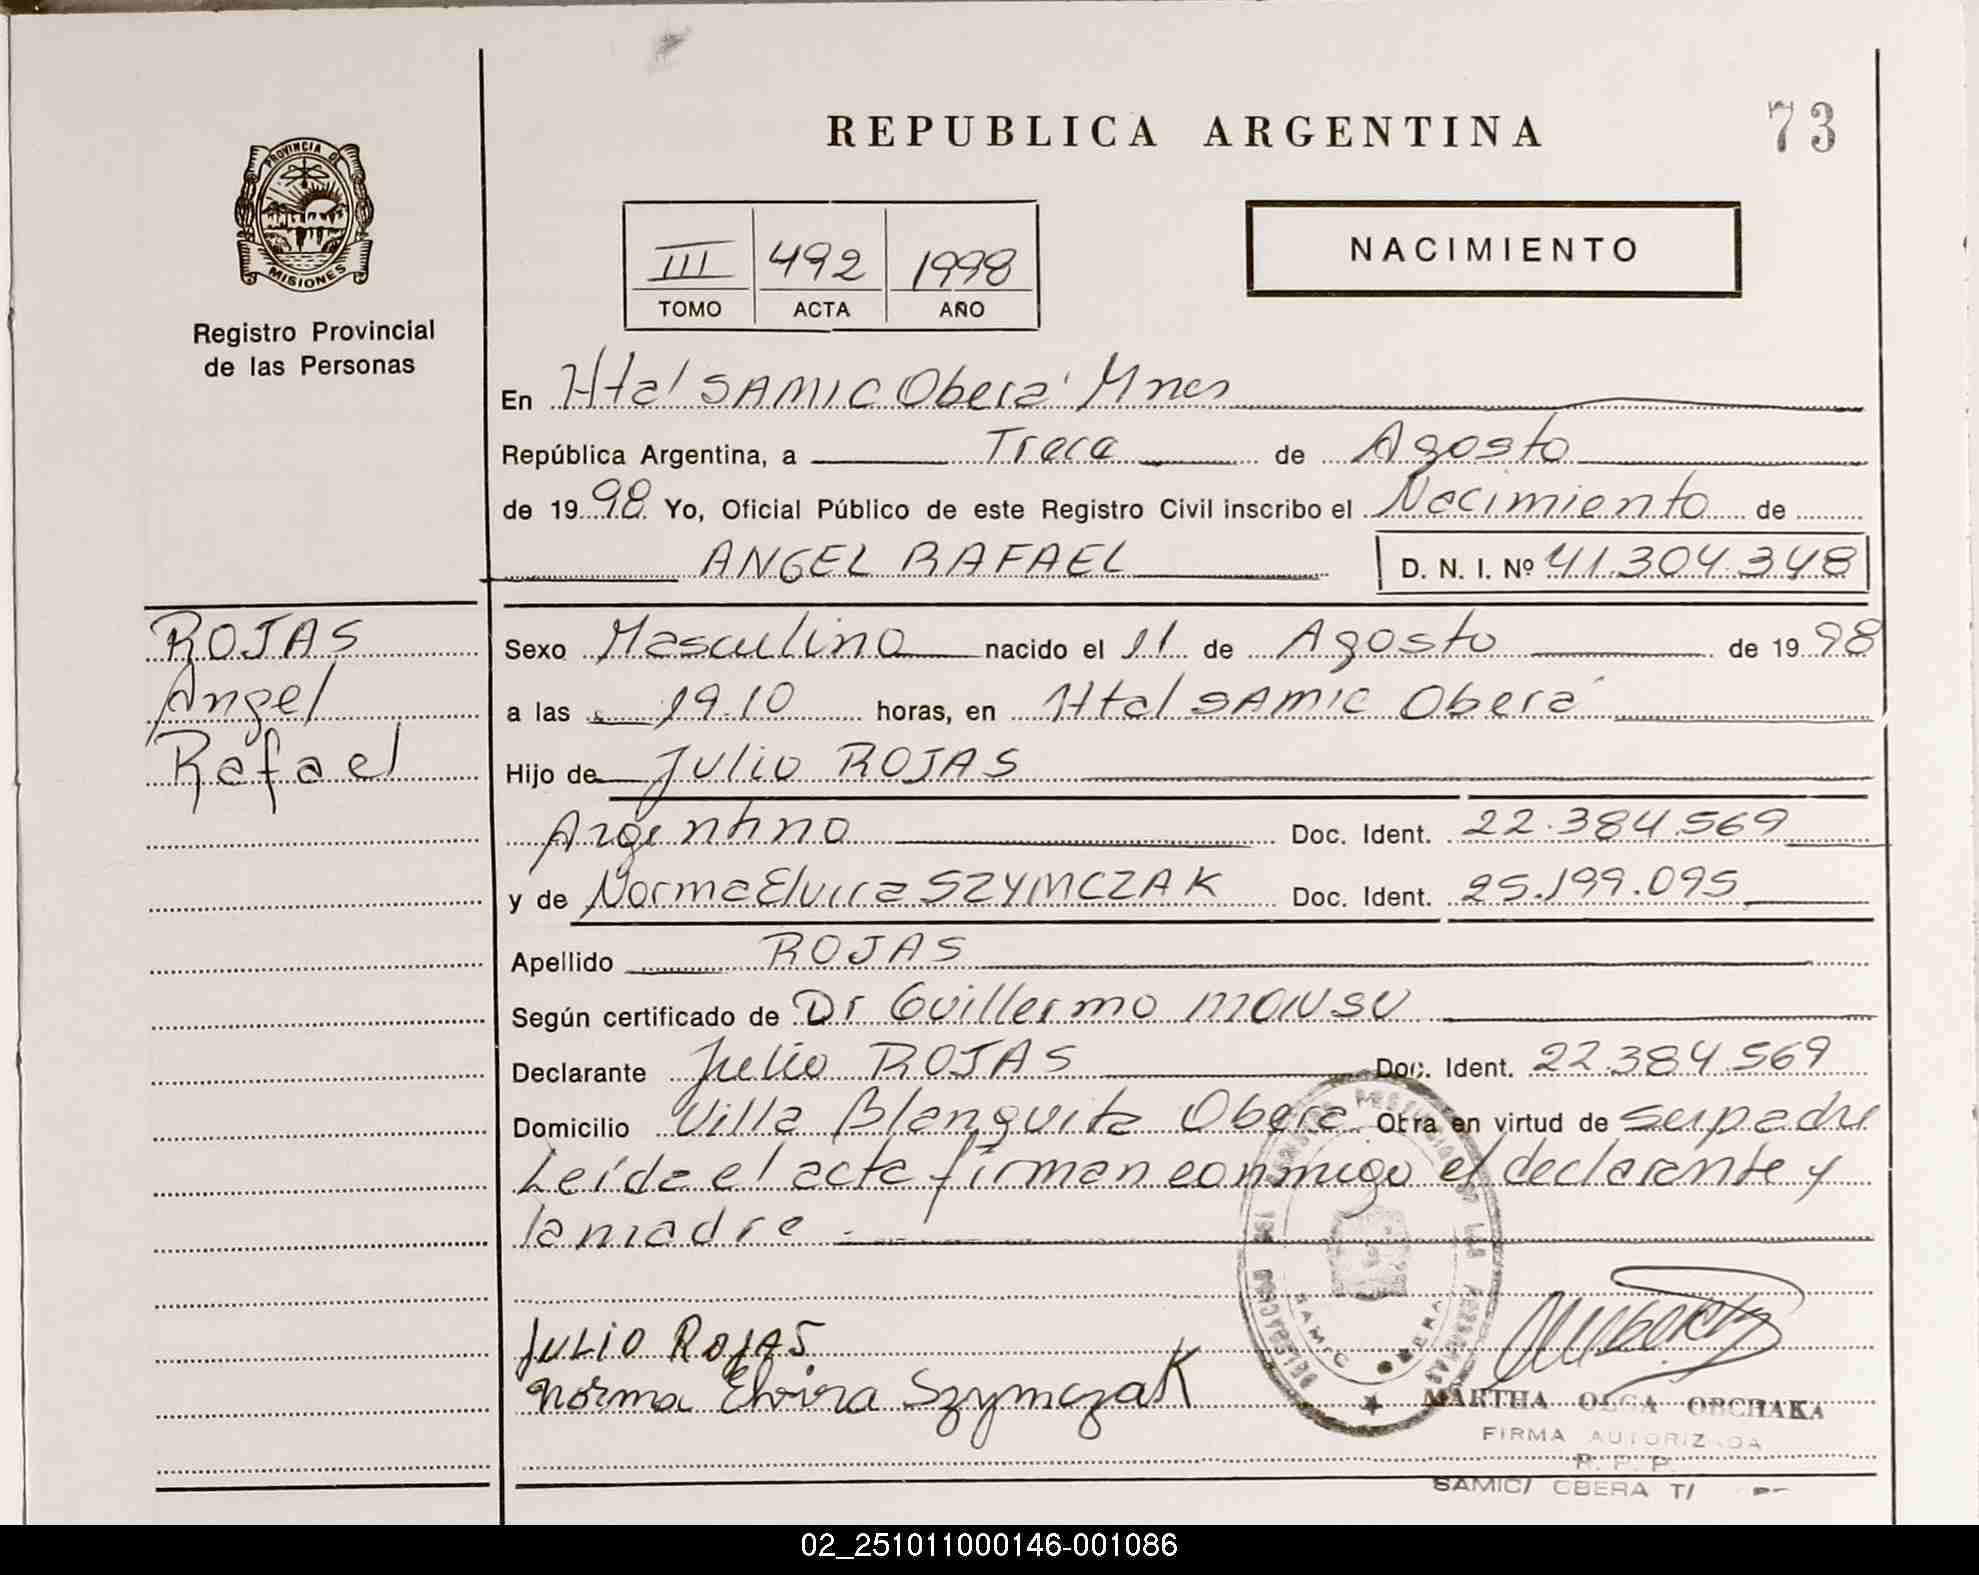 REPUBLICA ARGENTINA
73
PROVINCIA DE
MISIONES
Registro Provincial
de las Personas
III 492 1998
TOMO ACTA AÑO
NACIMIENTO
En Htal SAMIC Oberá Mnes
República Argentina, a Trece de Agosto
de 1998 Yo, Oficial Público de este Registro Civil inscribo el Nacimiento de
ANGEL RAFAEL D. N. I. Nº 41.304.348
ROJAS
Angel
Rafael
Sexo Masculino nacido el 11 de Agosto de 1998
a las 19.10 horas, en Htal SAMIC Oberá
Hijo de Julio ROJAS
Argentino Doc. Ident. 22.384.569
y de Norma Elvira SZYMCZAK Doc. Ident. 25.199.095
Apellido ROJAS
Según certificado de Dr Guillermo MONSU
Declarante Julio ROJAS Doc. Ident. 22.384.569
Domicilio Villa Blanquita Obera Obra en virtud de ser padre
Leída el acta firman conmigo el declarante y
la madre
JULIO ROJAS
Norma Elvira Szymczak
SAMIC OBERA
MARTHA OLGA OBCHAKA
FIRMA AUTORIZADA
R. P. P.
SAMIC/ OBERA T/
02_251011000146-001086